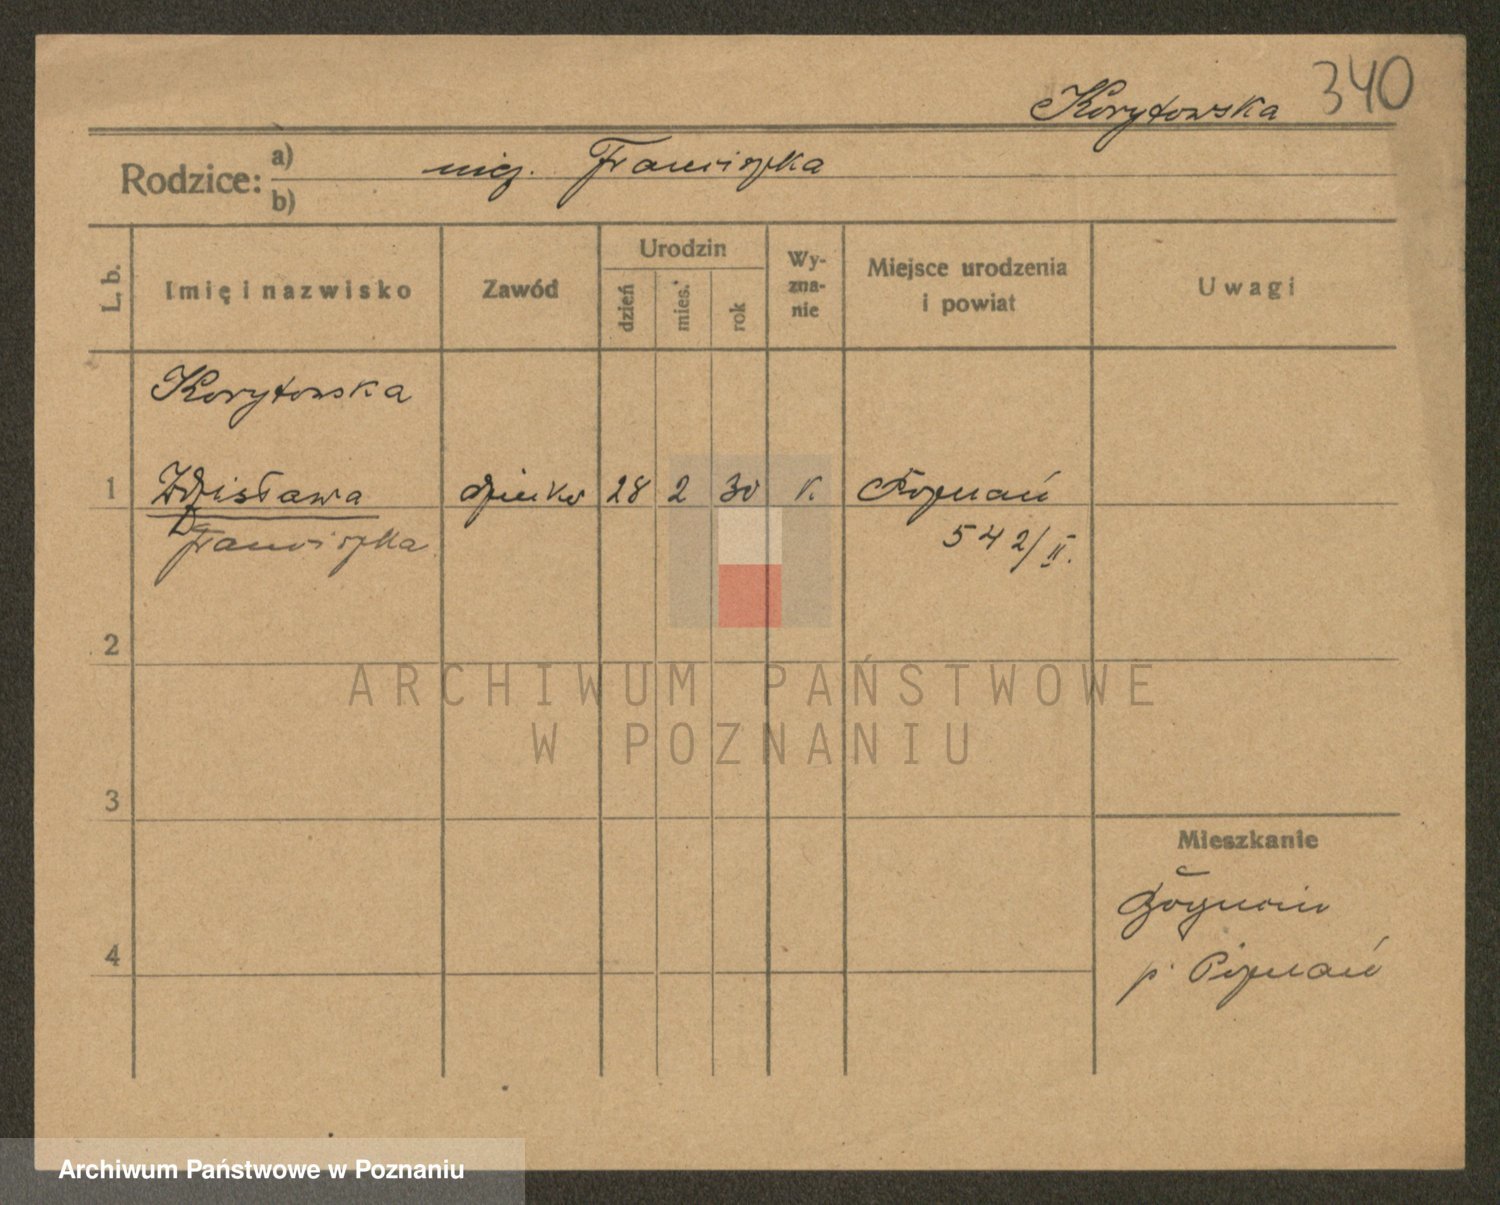 Korytowska 340
Rodzice: a) niez. Franciszka
b)
L. b. Imię i nazwisko Zawód Urodzin dzień mies. rok Wy-zna-nie Miejsce urodzenia i powiat Uwagi
Korytowska
1 Zdzisława dziecko 28 2 30 k. Poznań
Franciszka 542/II.
2
3
Mieszkanie
4
p. Poznań
ARCHIWUM PAŃSTWOWE
W POZNANIU
Archiwum Państwowe w Poznaniu